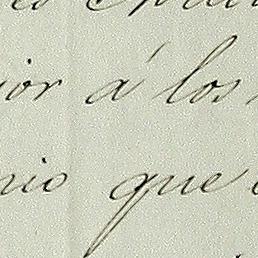 ior á los
nio que